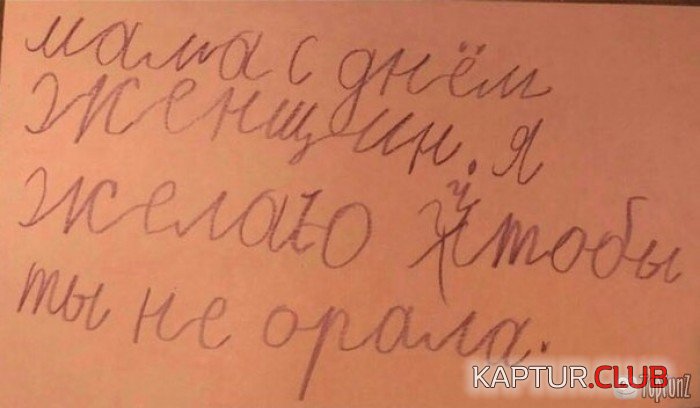 мама с днём
женщин. я
желаю чтобы
ты не орала.
KAPTUR.CLUB